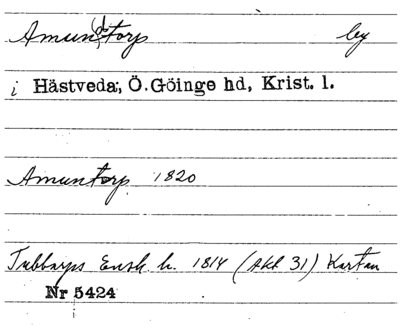 Amun(ds)torp by
i Hästveda, Ö.Göinge hd, Krist. l.
Amuntorp 1820
Tubbarps Ensk. h. 1814 (Akt 31) Kartan
Nr 5424